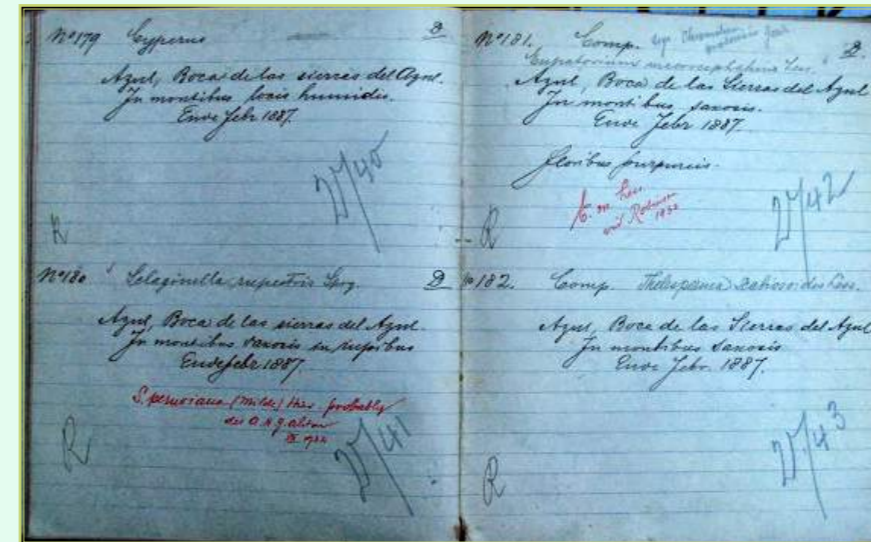 Nº179 Cyperus D
Azul, Boca de las sierras del Azul.
In montibus locis humidis.
Ende Febr 1887.
V/40
R
Nº180 Selaginella rupestris Sprg. D
Azul, Boca de las sierras del Azul.
In montibus saxosis in rupibus
Ende Febr 1887
S. peruviana (Milde) Hier. probably
det A.H.G. Alston
V/41
R
Nº181. Comp. D.
Eupatorium macrocephalum Less.
Azul, Boca de las Sierras del Azul
In montibus, saxosis.
Ende Febr 1887
floribus purpureis.
E. m Less.
Robinson
V/42
R
Nº182. Comp. Thelesperma Less.
Azul, Boca de las Sierras del Azul
In montibus saxosis
Ende Febr. 1887.
V/43
R